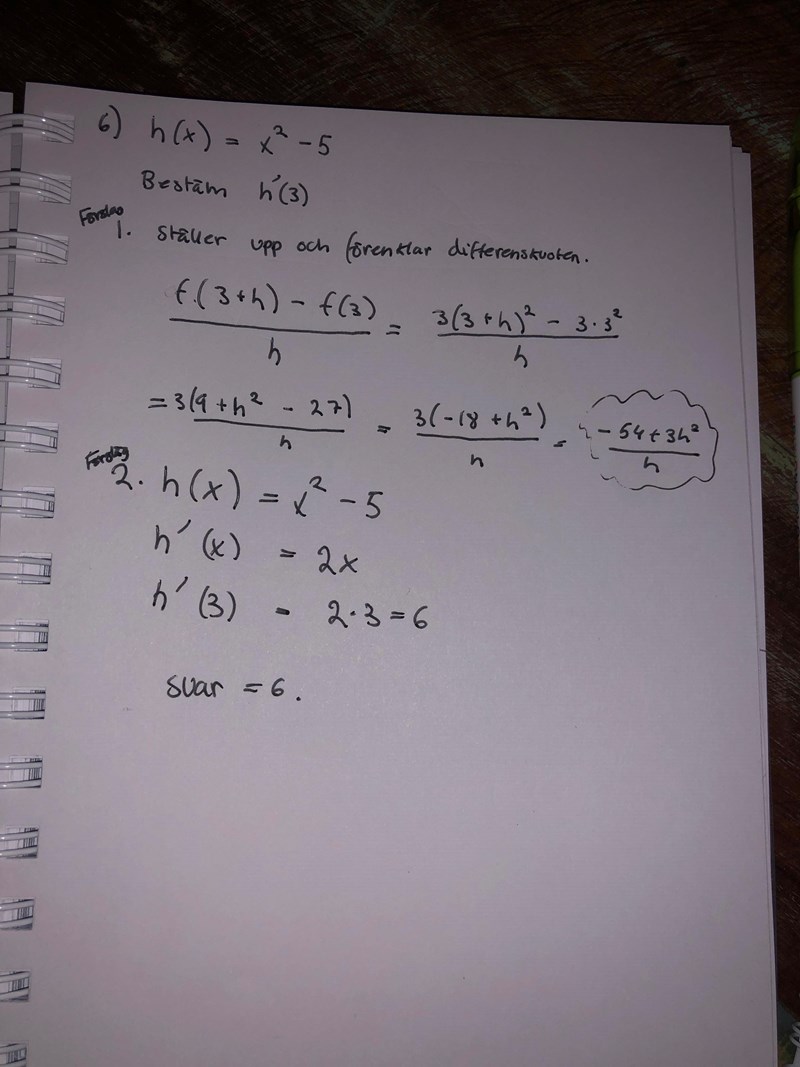 6) h(x) = x² - 5
Bestäm h'(3)
Förslag
1. Ställer upp och förenklar differenskvoten.
f.(3+h) - f(3) / h = 3(3+h)² - 3·3² / h
= 3(9+h² - 27) / h = 3(-18+h²) / h = -54+3h² / h
Förslag
2. h(x) = x² - 5
h'(x) = 2x
h'(3) = 2·3 = 6
Svar = 6.